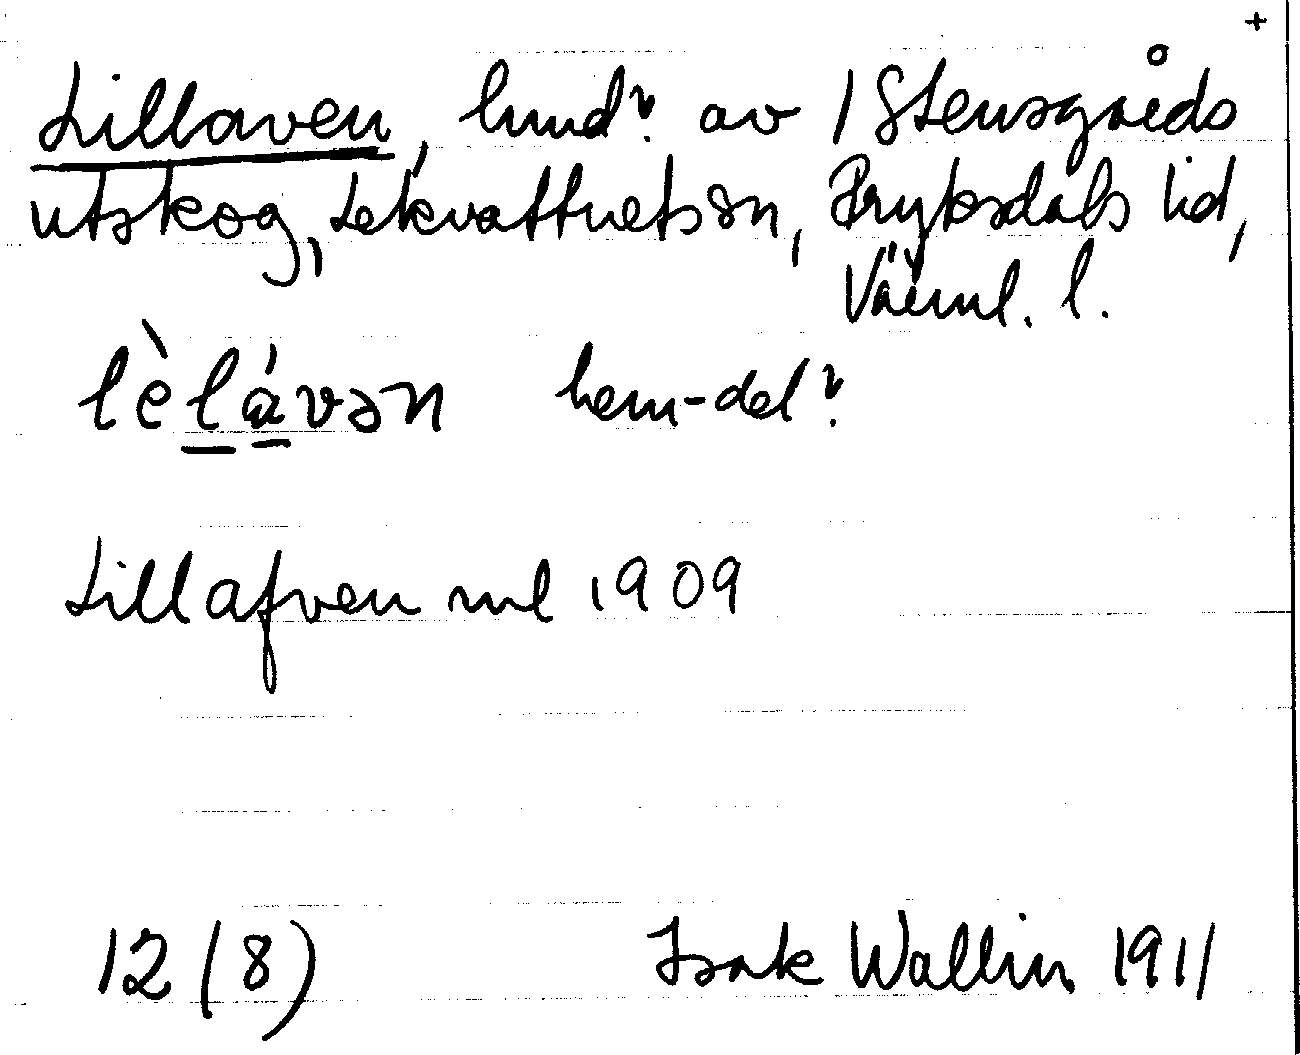 +
Lillaven, lund? av 1 Stensgårds
utskog, Lekvattnets sn, Fryksdals hd,
Värml. l.
lèlávən hem-del?
Lillafven ml 1909
12 (8) Isak Wallin 1911